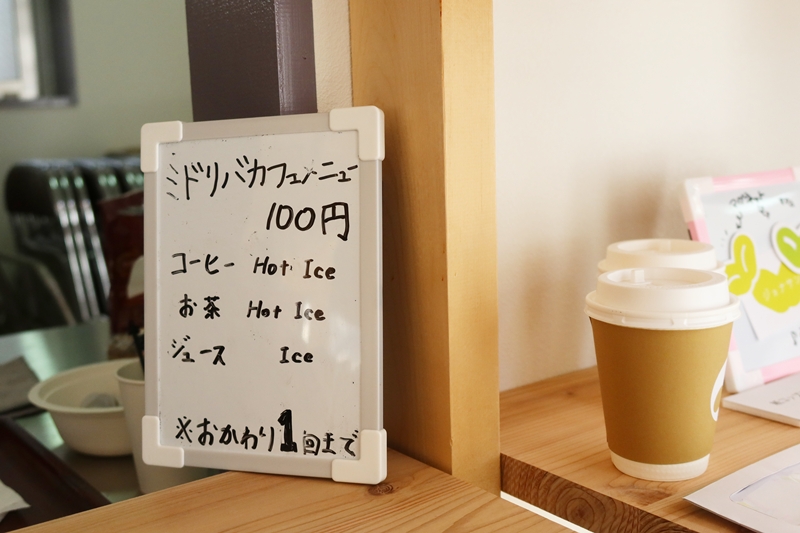 ミドリバカフェメニュー
100円
コーヒー Hot Ice
お茶 Hot Ice
ジュース Ice
※おかわり1回まで